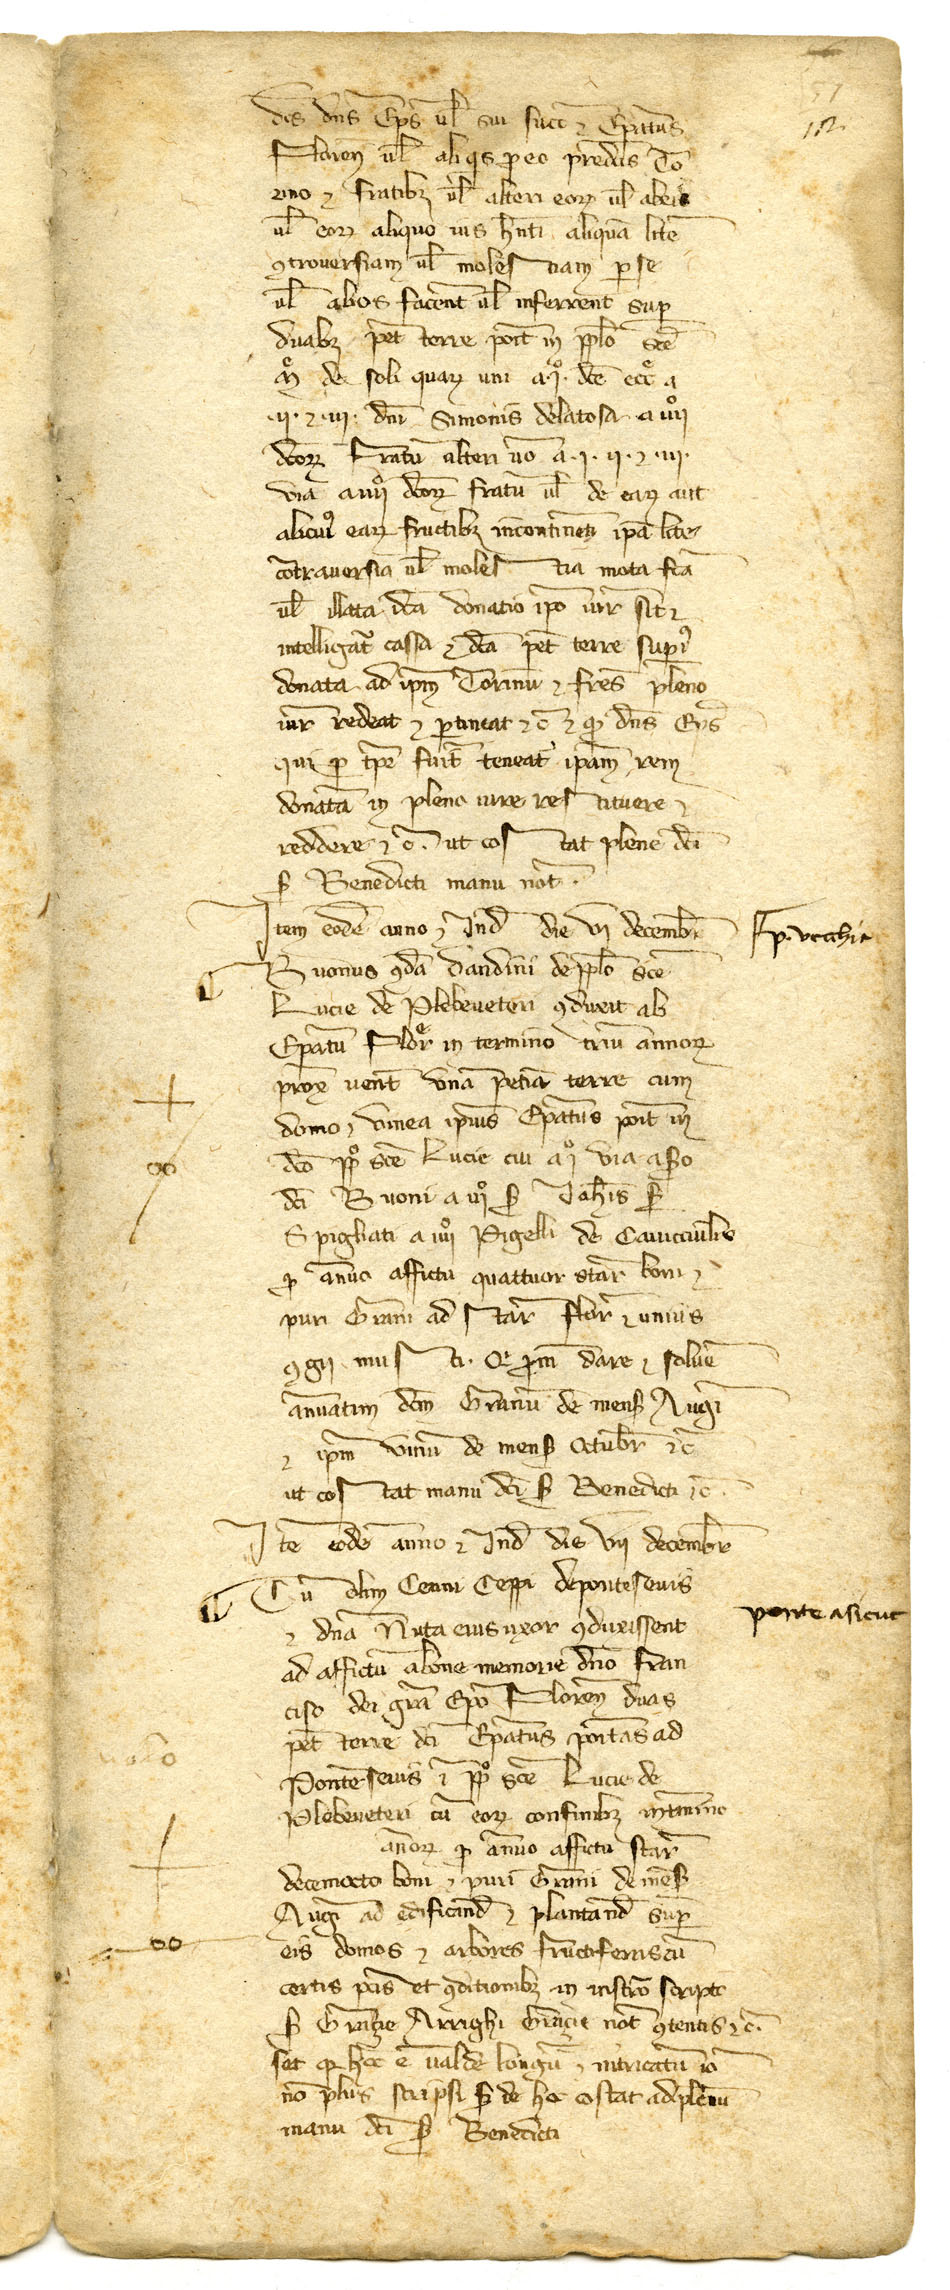 57
112
dc̄s dn̄s Ep̄s ul̄ sui succ̄ ⁊ Ep̄atus
Floren̄ ul̄ aliq̄s p̱ eo pred̄c̄is To
rino ⁊ fratibꝫ ul̄ alteri eoꝝ ul̄ ab eis
ul̄ eoꝝ aliquo ius hn̄ti aliquā litē
ꝯtroversiam ul̄ molestiam p̱ se
ul̄ alios facerent ul̄ inferrent sup̱
duabꝫ pet̄ terre poīt in pp̄lo sc̄e
M͛ de soli quaꝝ uni a .j.º dc̄e ecc͛e a
.ij. ⁊ .iij. dn̄i Simonis dela tosa a iiijº
dc̄oꝝ fratū alteri ūo a .j. ij. ⁊ .iij.
via a iiijº dc̄oꝝ fratū ul̄ de eaꝝ aut
alicui᷒ eaꝝ fructibꝫ incontinēti ip̄a lite
cōtraversia ul̄ molestia mota fc̄a
ul̄ illata dc̄a donatio ip̄o iur̄ sit ⁊
intelligat᷑ cassa ⁊ dc̄a pet̄ terre superi᷒
donata ad ip̄m Torinū ⁊ fr̄es pleno
iur̄ redeat ⁊ p̱tineat ⁊c̄ ⁊ qꝫ dn̄s Ep̄s
qui p̱ tp̄e fuit̄ teneat᷑ ip̄am rem
donatā in pleno iure restituere ⁊
reddere ⁊c̄. ut costat plene dc̄i
S̱ Benedicti manu not̄.
Item eodē anno ⁊ Ind̄ die vj decembr̄
p. vecchia
Buonus ꝯdā Dandini de pp̄lo sc̄e
Lucie de Plebeueteri ꝯduxit ab
Ep̄atu Flor͛ in termino triū annoꝝ
prox̄ uent̄ unā petiā terre cum
domo ⁊ vinea ip̄ius Ep̄atus poīt in
dc̄o pp̄º sc̄e Lucie cui a jº via a ijº
dc̄i Buoni a iijº S̱ Ioh̄is S̱
Spigliati a iiijº Rigelli de Cavicciulis
p̱ annuo affictu quattuor star̄ boni ⁊
puri Grani ad star̄ flor̄ ⁊ unius
ꝯgij musti. Q̄ p̄m dare ⁊ soluē
annuatim dc̄m Granū de mens̱ Auḡi
⁊ ip̄m vinū de mens̱ Octubr̄ ⁊c̄
ut costat manu dc̄i S̱ Benedicti ⁊c̄.
Itē eodē anno ⁊ Ind̄ die vij decembr̄
Cū olim Cenni Ceppi de ponte seuis
ponte a sieve
⁊ dn̄a Nuta eius uxor ꝯduxissent
ad affictū a bone memorie dn̄o Fran
cisco dei gr̄a Ep̄o Floren̄ duas
pet̄ terre dc̄i Ep̄atus poītas ad
Pontē seuis ī pp̄º sc̄e Lucie de
Plebeueteri cū eoꝝ confinibꝫ in t̄mino
annoꝝ p̱ annuo affictu star̄
decemocto boni ⁊ puri Grani de mens̱
Auḡi ad edificand̄ ⁊ plantand̄ sup̱
eis domos ⁊ arbores fructiferas cū
certis pc̄is et ꝯditionibꝫ in instr̄o scripto
S̱ Gratie Arrighi Gratie not̄ ꝯtentis ⁊c̄.
set qꝫ hec ē valde longū ⁊ intricatū iō
nō plus scripsi S̱ de hoc costat ad plenū
manu dc̄i S̱ Benedicti